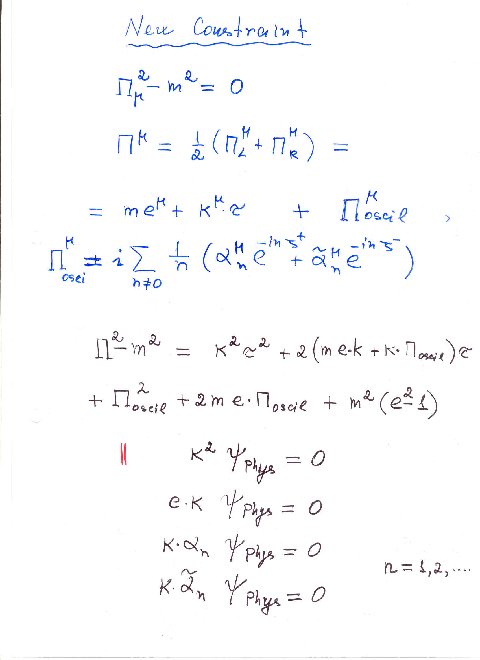 New Constraint
Π_μ^2 - m^2 = 0
Π^μ = 1/2 (Π_L^μ + Π_R^μ) =
= me^μ + κ^μ·τ + Π^μ_oscil ,
Π^μ_osci = i ∑_{n≠0} 1/n (α_n^μ e^{-inξ^+} + α̃_n^μ e^{-inξ^-})
Π^2 - m^2 = κ^2 τ^2 + 2(m e·κ + κ·Π_oscil)τ
+ Π^2_oscil + 2m e·Π_oscil + m^2 (e^2 - 1)
|| κ^2 Ψ_Phys = 0
e·κ Ψ_Phys = 0
κ·α_n Ψ_Phys = 0
κ·α̃_n Ψ_Phys = 0 n = 1,2,....